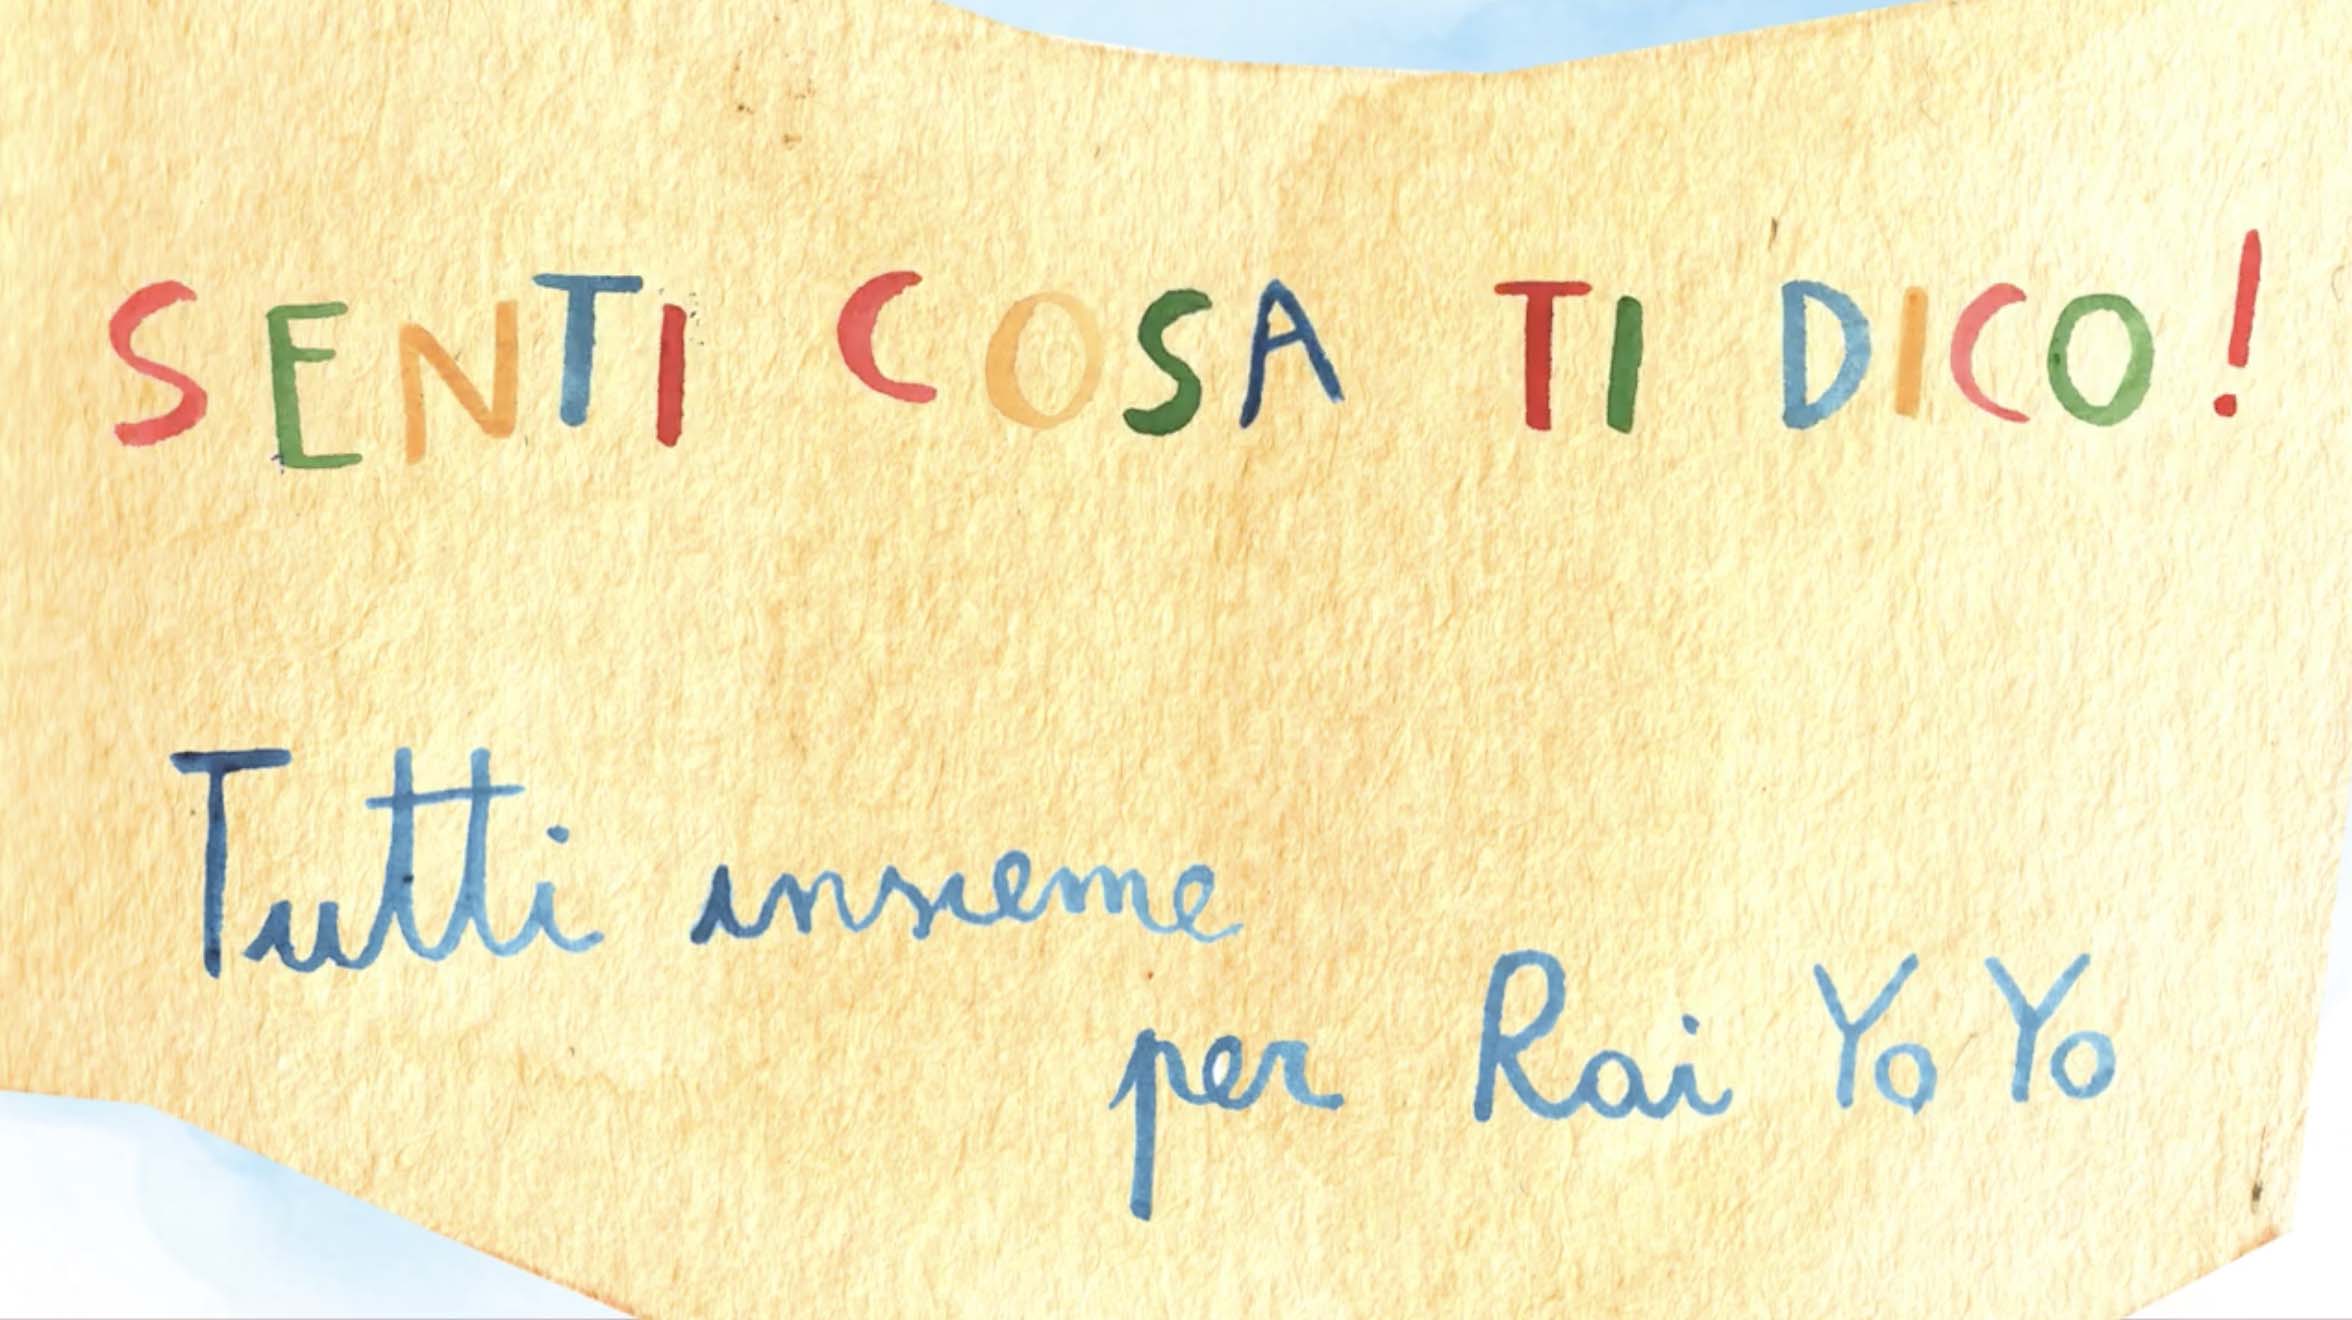 SENTI COSA TI DICO!
Tutti insieme
per Rai YoYo